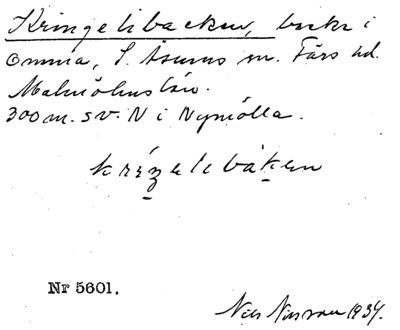 Kringelibacken, backe i
Omma, S. Åsums sn. Färs hd.
Malmöhus län.
300 m. sv. N i Nymölla.
Nr 5601.
Nils Nilsson 1934.